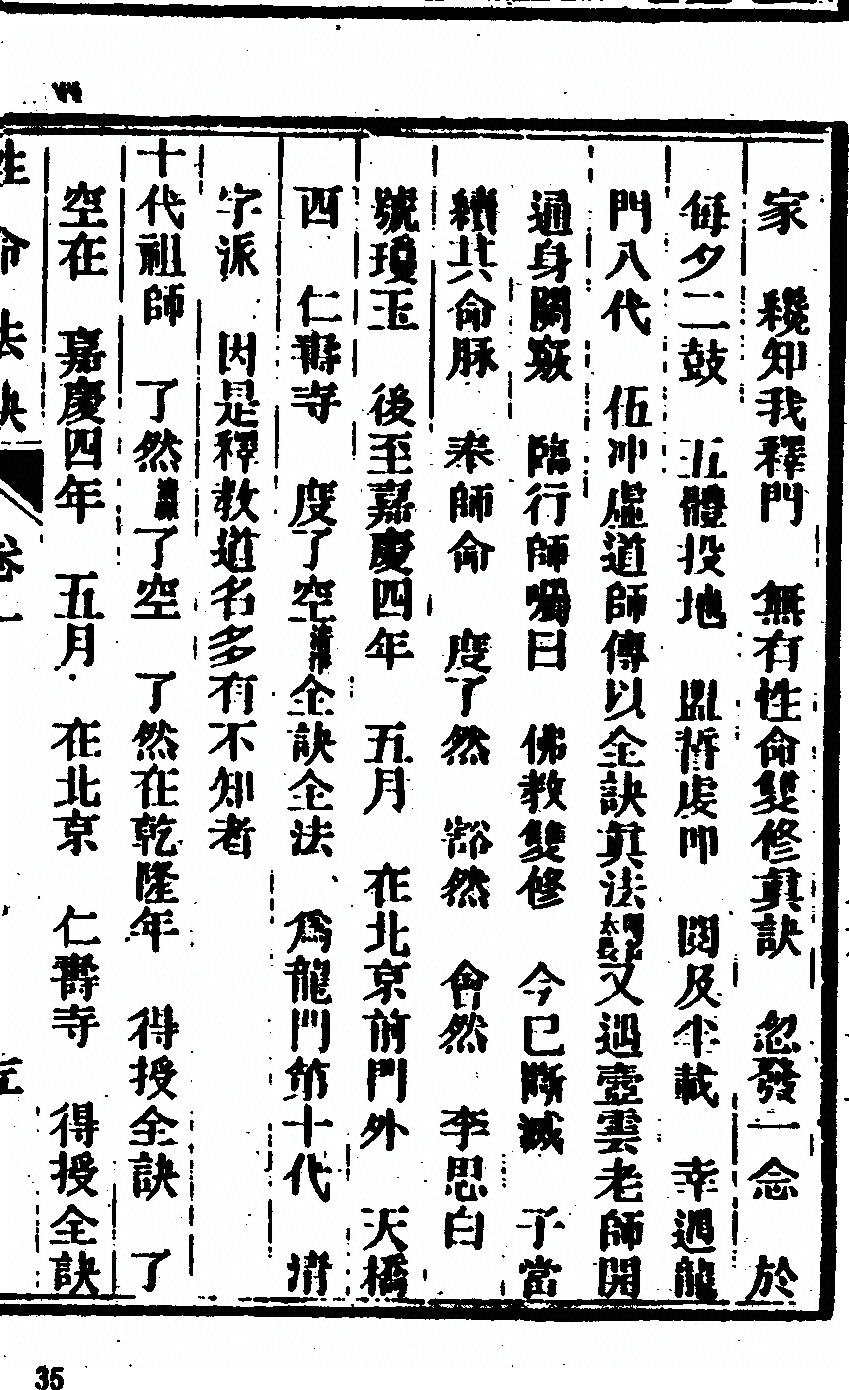 家 纔知我釋門 無有性命雙修眞訣 忽發一念 於
每夕二鼓 五體投地 盟誓虔叩 閱及半載 幸遇龍
門八代 伍冲虛道師傳以全訣眞法 又遇壺雲老師開
通身關竅 臨行師囑曰 佛教雙修 今已斷滅 子當
續其命脉 奉師命 度了然 豁然 會然 李思白
號瓊玉 後至嘉慶四年 五月 在北京前門外 天橋
西 仁壽寺 度了空 全訣全法、爲龍門第十代 清
字派 因是釋教道名多有不知者
十代祖師 了然 了空 了然在乾隆年 得授全訣 了
空在 嘉慶四年 五月 在北京 仁壽寺 得授全訣
性命法訣 卷一
35